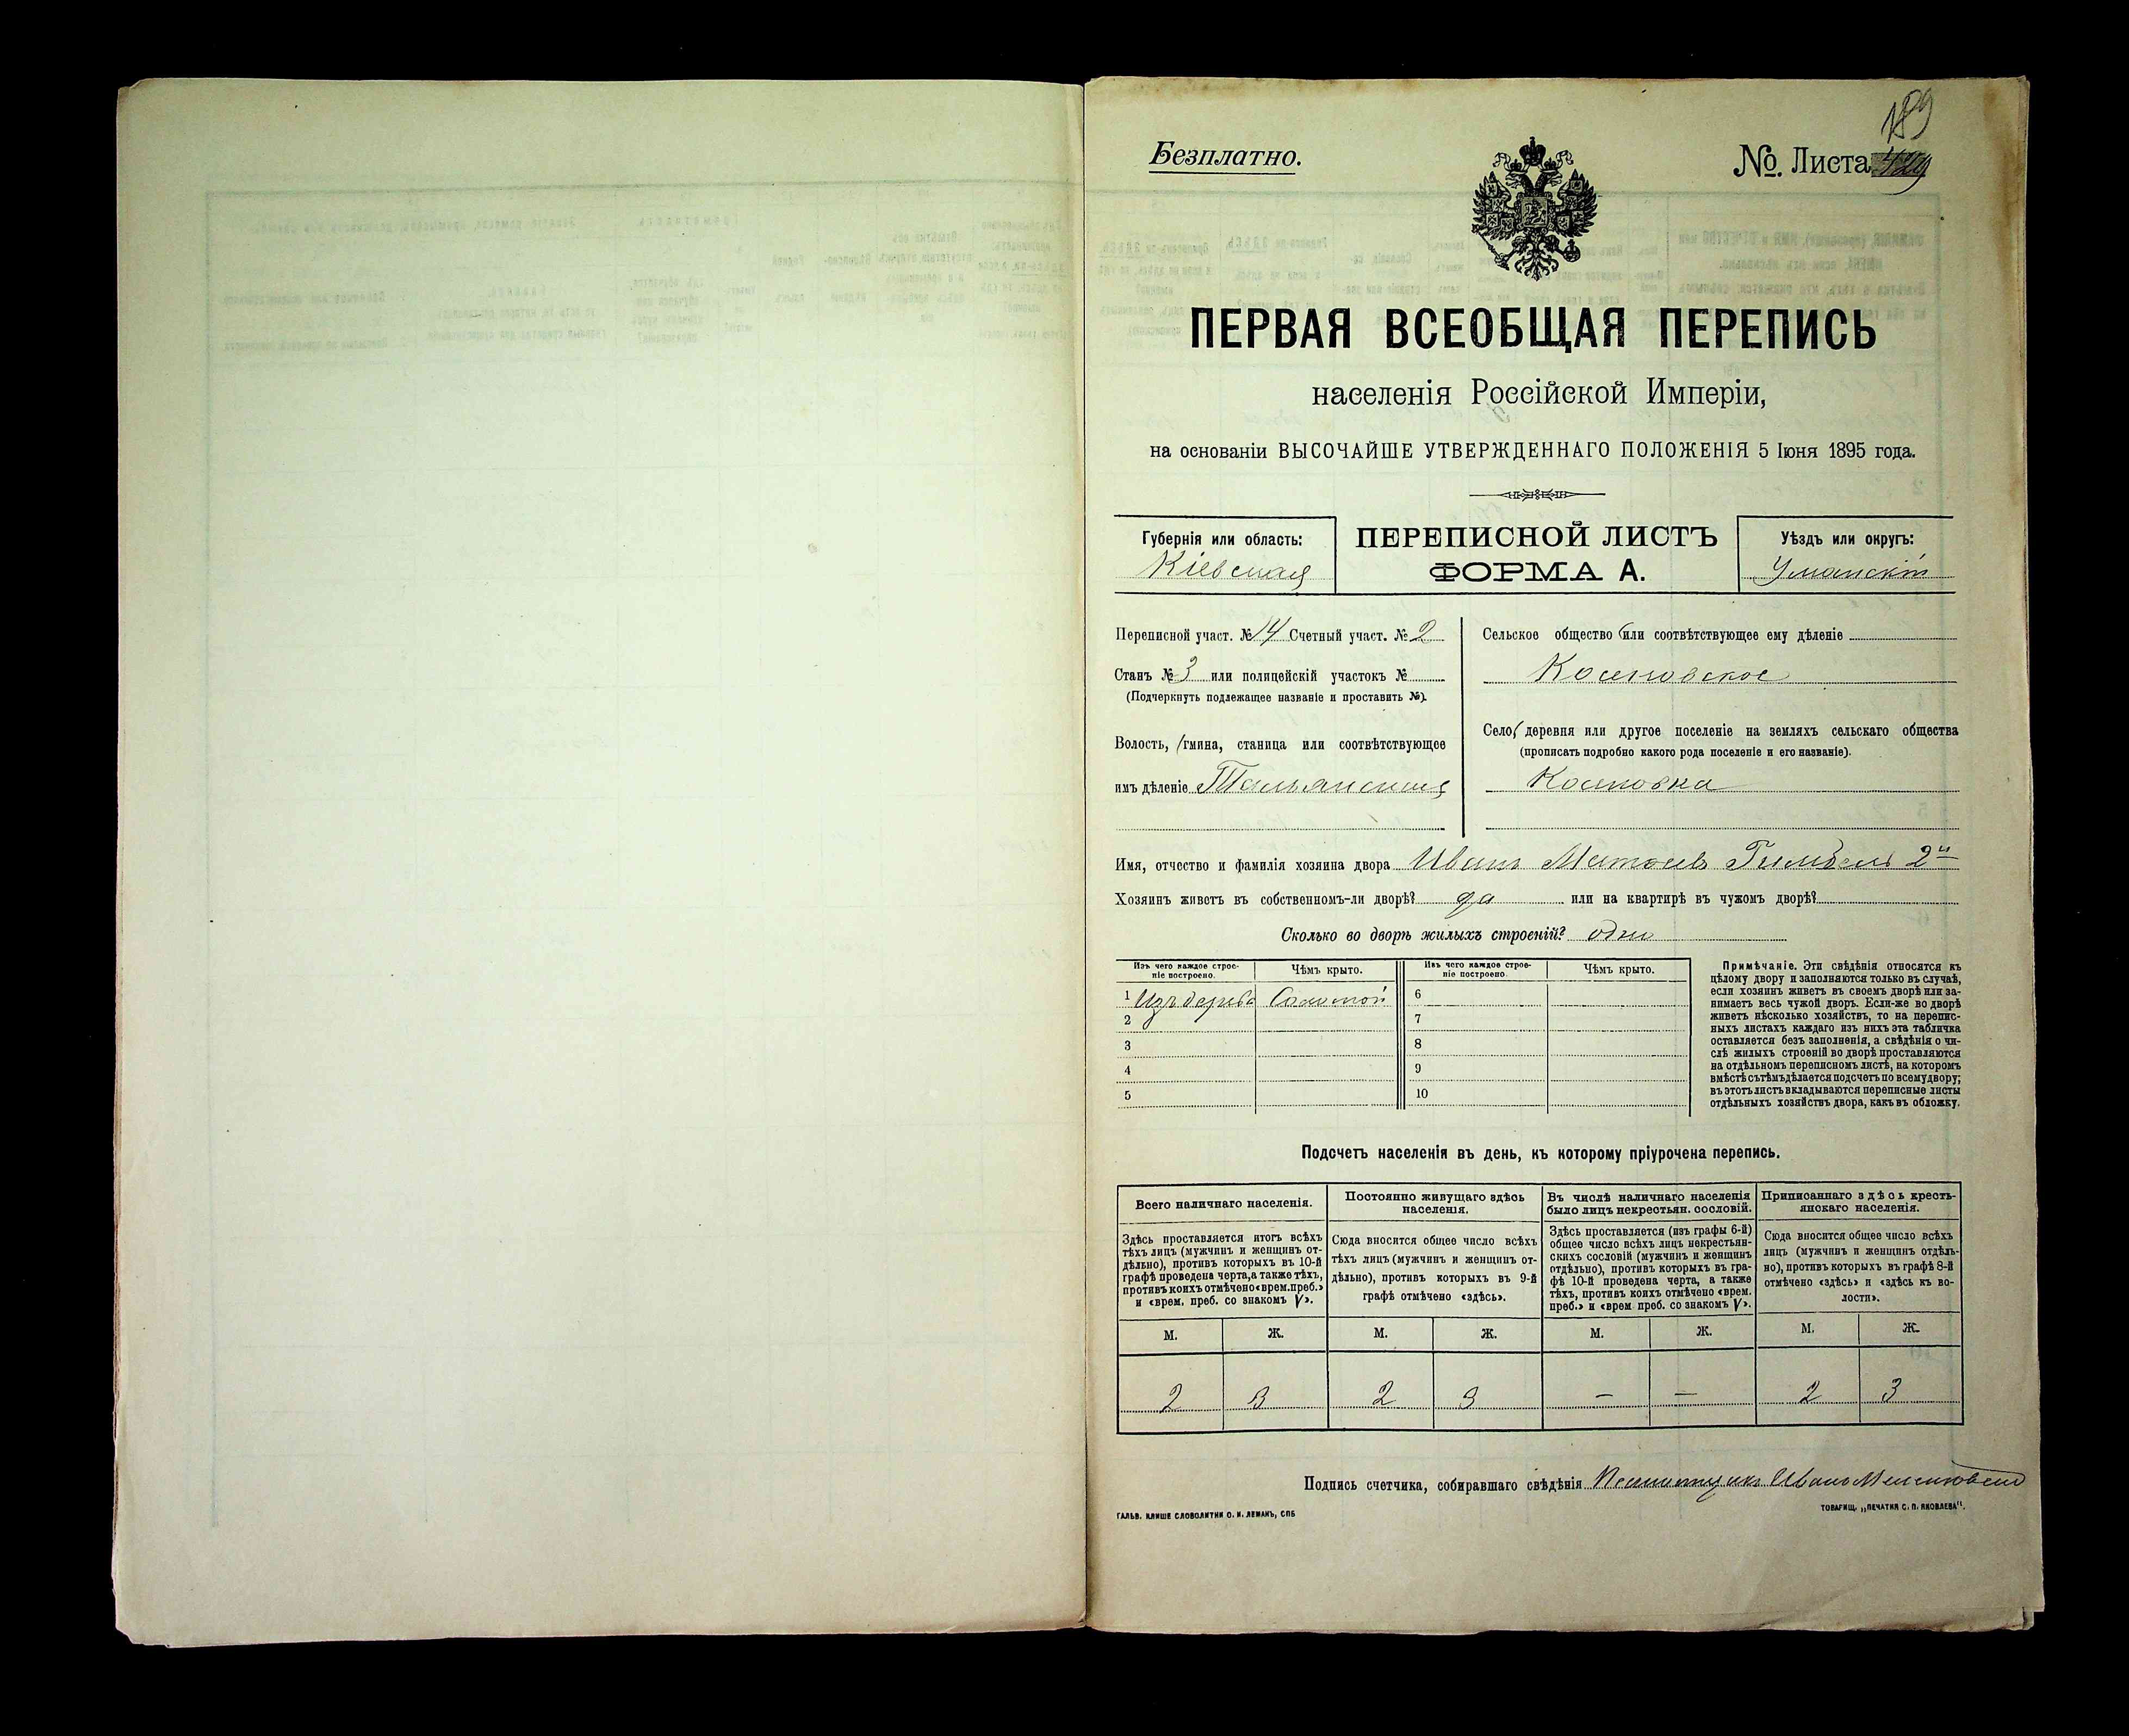 189
Безплатно.
№. Листа
ПЕРВАЯ ВСЕОБЩАЯ ПЕРЕПИСЬ
населенія Россійской Имперіи,
на основаніи ВЫСОЧАЙШЕ УТВЕРЖДЕННАГО ПОЛОЖЕНІЯ 5 Іюня 1895 года.
Губернія или область:
Кіевская
ПЕРЕПИСНОЙ ЛИСТЪ
ФОРМА А.
Уѣздъ или округъ:
Уманскій
Переписной участ. № 14 Счетный участ. № 2
Станъ № 3 или полицейскій участокъ №
(Подчеркнуть подлежащее названіе и проставить №).
Волость, гмина, станица или соотвѣтствующее
имъ дѣленіе Тальянская
Сельское общество или соотвѣтствующее ему дѣленіе
Косеновское
Село, деревня или другое поселеніе на земляхъ сельскаго общества
(прописать подробно какого рода поселеніе и его названіе).
Косеновка
Имя, отчество и фамилія хозяина двора Иванъ 2й
Хозяинъ живетъ въ собственномъ-ли дворѣ? да или на квартирѣ въ чужомъ дворѣ?
Сколько во дворѣ жилыхъ строеній? одно
Изъ чего каждое строе-
ніе построено.
Чѣмъ крыто.
Изъ чего каждое строе-
ніе построено.
Чѣмъ крыто.
1 Изъ дерева Соломой 6
2 7
3 8
4 9
5 10
Примѣчаніе. Эти свѣдѣнія относятся къ
цѣлому двору и заполняются только въ случаѣ,
если хозяинъ живетъ въ своемъ дворѣ или за-
нимаетъ весь чужой дворъ. Если-же во дворѣ
живетъ нѣсколько хозяйствъ, то на перепис-
ныхъ листахъ каждаго изъ нихъ эта табличка
оставляется безъ заполненія, а свѣдѣнія о чи-
слѣ жилыхъ строеній во дворѣ проставляются
на отдѣльномъ переписномъ листѣ, на которомъ
вмѣстѣ съ тѣмъ дѣлается подсчетъ по всему двору;
въ этотъ листъ вкладываются переписные листы
отдѣльныхъ хозяйствъ двора, какъ въ обложку.
Подсчетъ населенія въ день, къ которому пріурочена перепись.
Всего наличнаго населенія.
Здѣсь проставляется итогъ всѣхъ
тѣхъ лицъ (мужчинъ и женщинъ от-
дѣльно), противъ которыхъ въ 10-й
графѣ проведена черта, а также тѣхъ,
противъ коихъ отмѣчено «врем. преб.»
и «врем. преб. со знакомъ V».
Постоянно живущаго здѣсь
населенія.
Сюда вносится общее число всѣхъ
тѣхъ лицъ (мужчинъ и женщинъ от-
дѣльно), противъ которыхъ въ 9-й
графѣ отмѣчено «здѣсь».
Въ числѣ наличнаго населенія
было лицъ некрестьян. сословій.
Здѣсь проставляется (изъ графы 6-й)
общее число всѣхъ лицъ некрестьян-
скихъ сословій (мужчинъ и женщинъ
отдѣльно), противъ которыхъ въ гра-
фѣ 10-й проведена черта, а также
тѣхъ, противъ коихъ отмѣчено «врем.
преб.» и «врем преб. со знакомъ V».
Приписаннаго здѣсь кресть-
янскаго населенія.
Сюда вносится общее число всѣхъ
лицъ (мужчинъ и женщинъ отдѣль-
но), противъ которыхъ въ графѣ 8-й
отмѣчено «здѣсь» и «здѣсь къ во-
лости».
М. Ж. М. Ж. М. Ж. М. Ж.
2 3 2 3 — — 2 3
Подпись счетчика, собиравшаго свѣдѣнія Иванъ
ГАЛЬВ. КЛИШЕ СЛОВОЛИТНИ О. И. ЛЕМАНЪ, СПБ
ТОВАРИЩ. „ПЕЧАТНЯ С. П. ЯКОВЛЕВА".